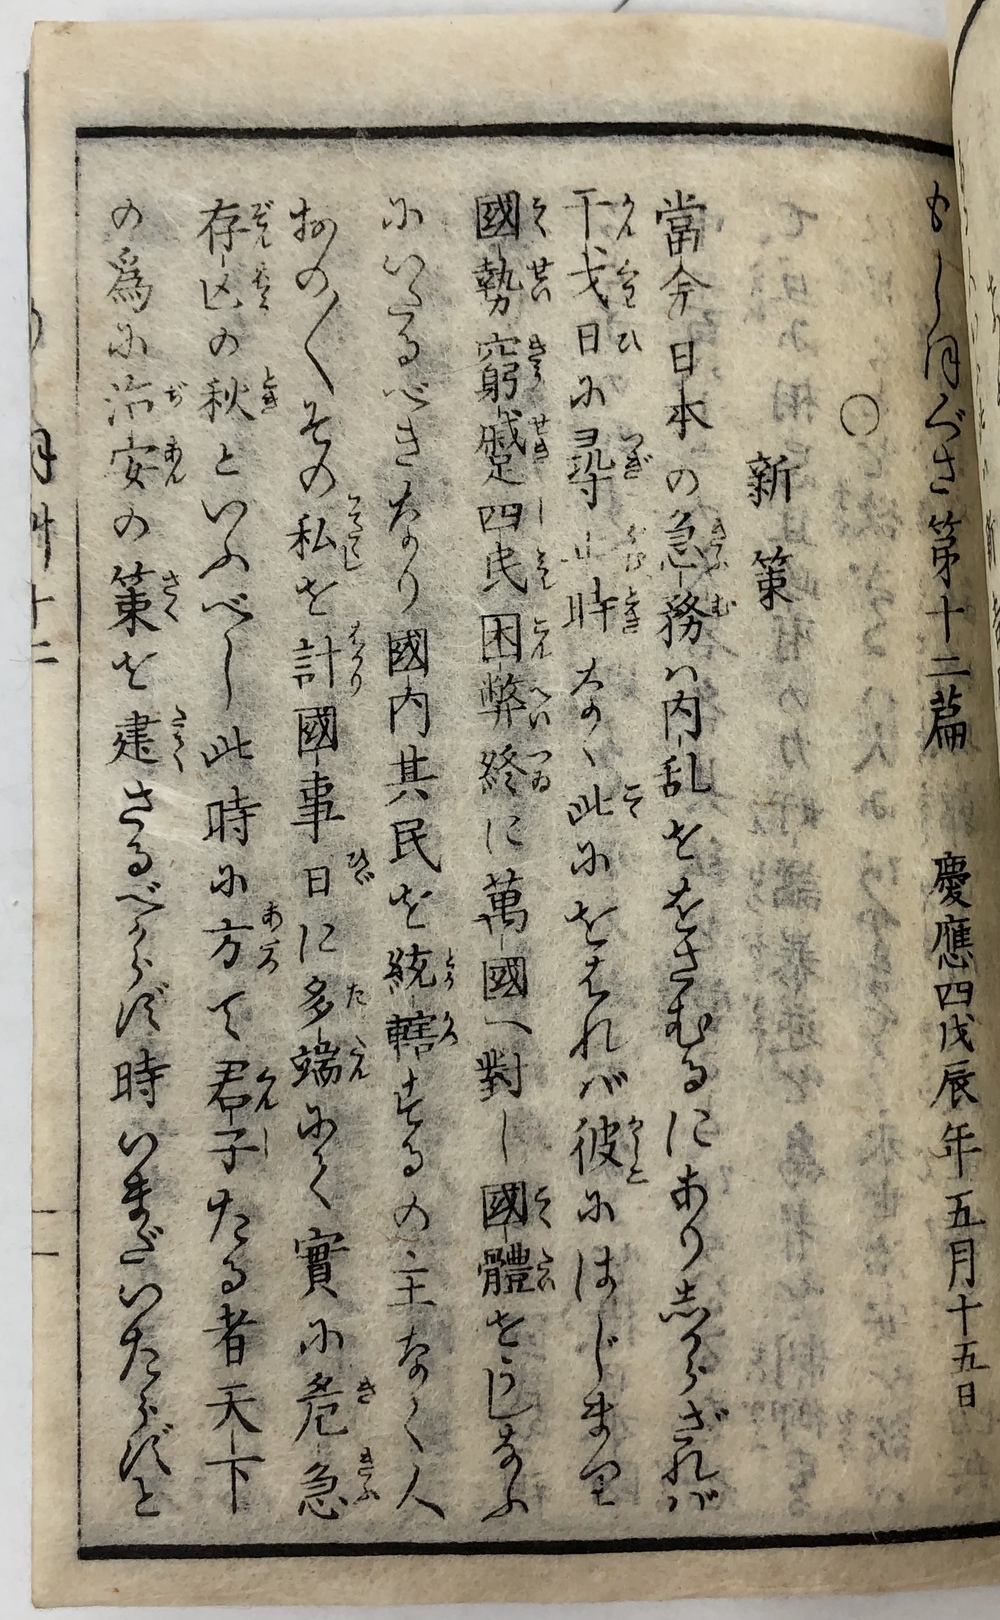 もしほぐさ第十二篇 慶應四戊辰年五月十五日
○
新策
當今日本の急務ハ内乱ををさむるにあり志からざれバ
干戈日尓尋止時なく此尓をはれバ彼尓はじまり
國勢窮蹙四民困弊終に萬國へ對し國體をうしなふ
尓いたるべきなり國内其民を統轄するの主なく人
おの〳〵その私を計國事日に多端尓て實尓危急
存亡の秋といふべし此時尓方て君子たる者天下
の爲尓治安の策を建ざるべからず時いまだいたらずと